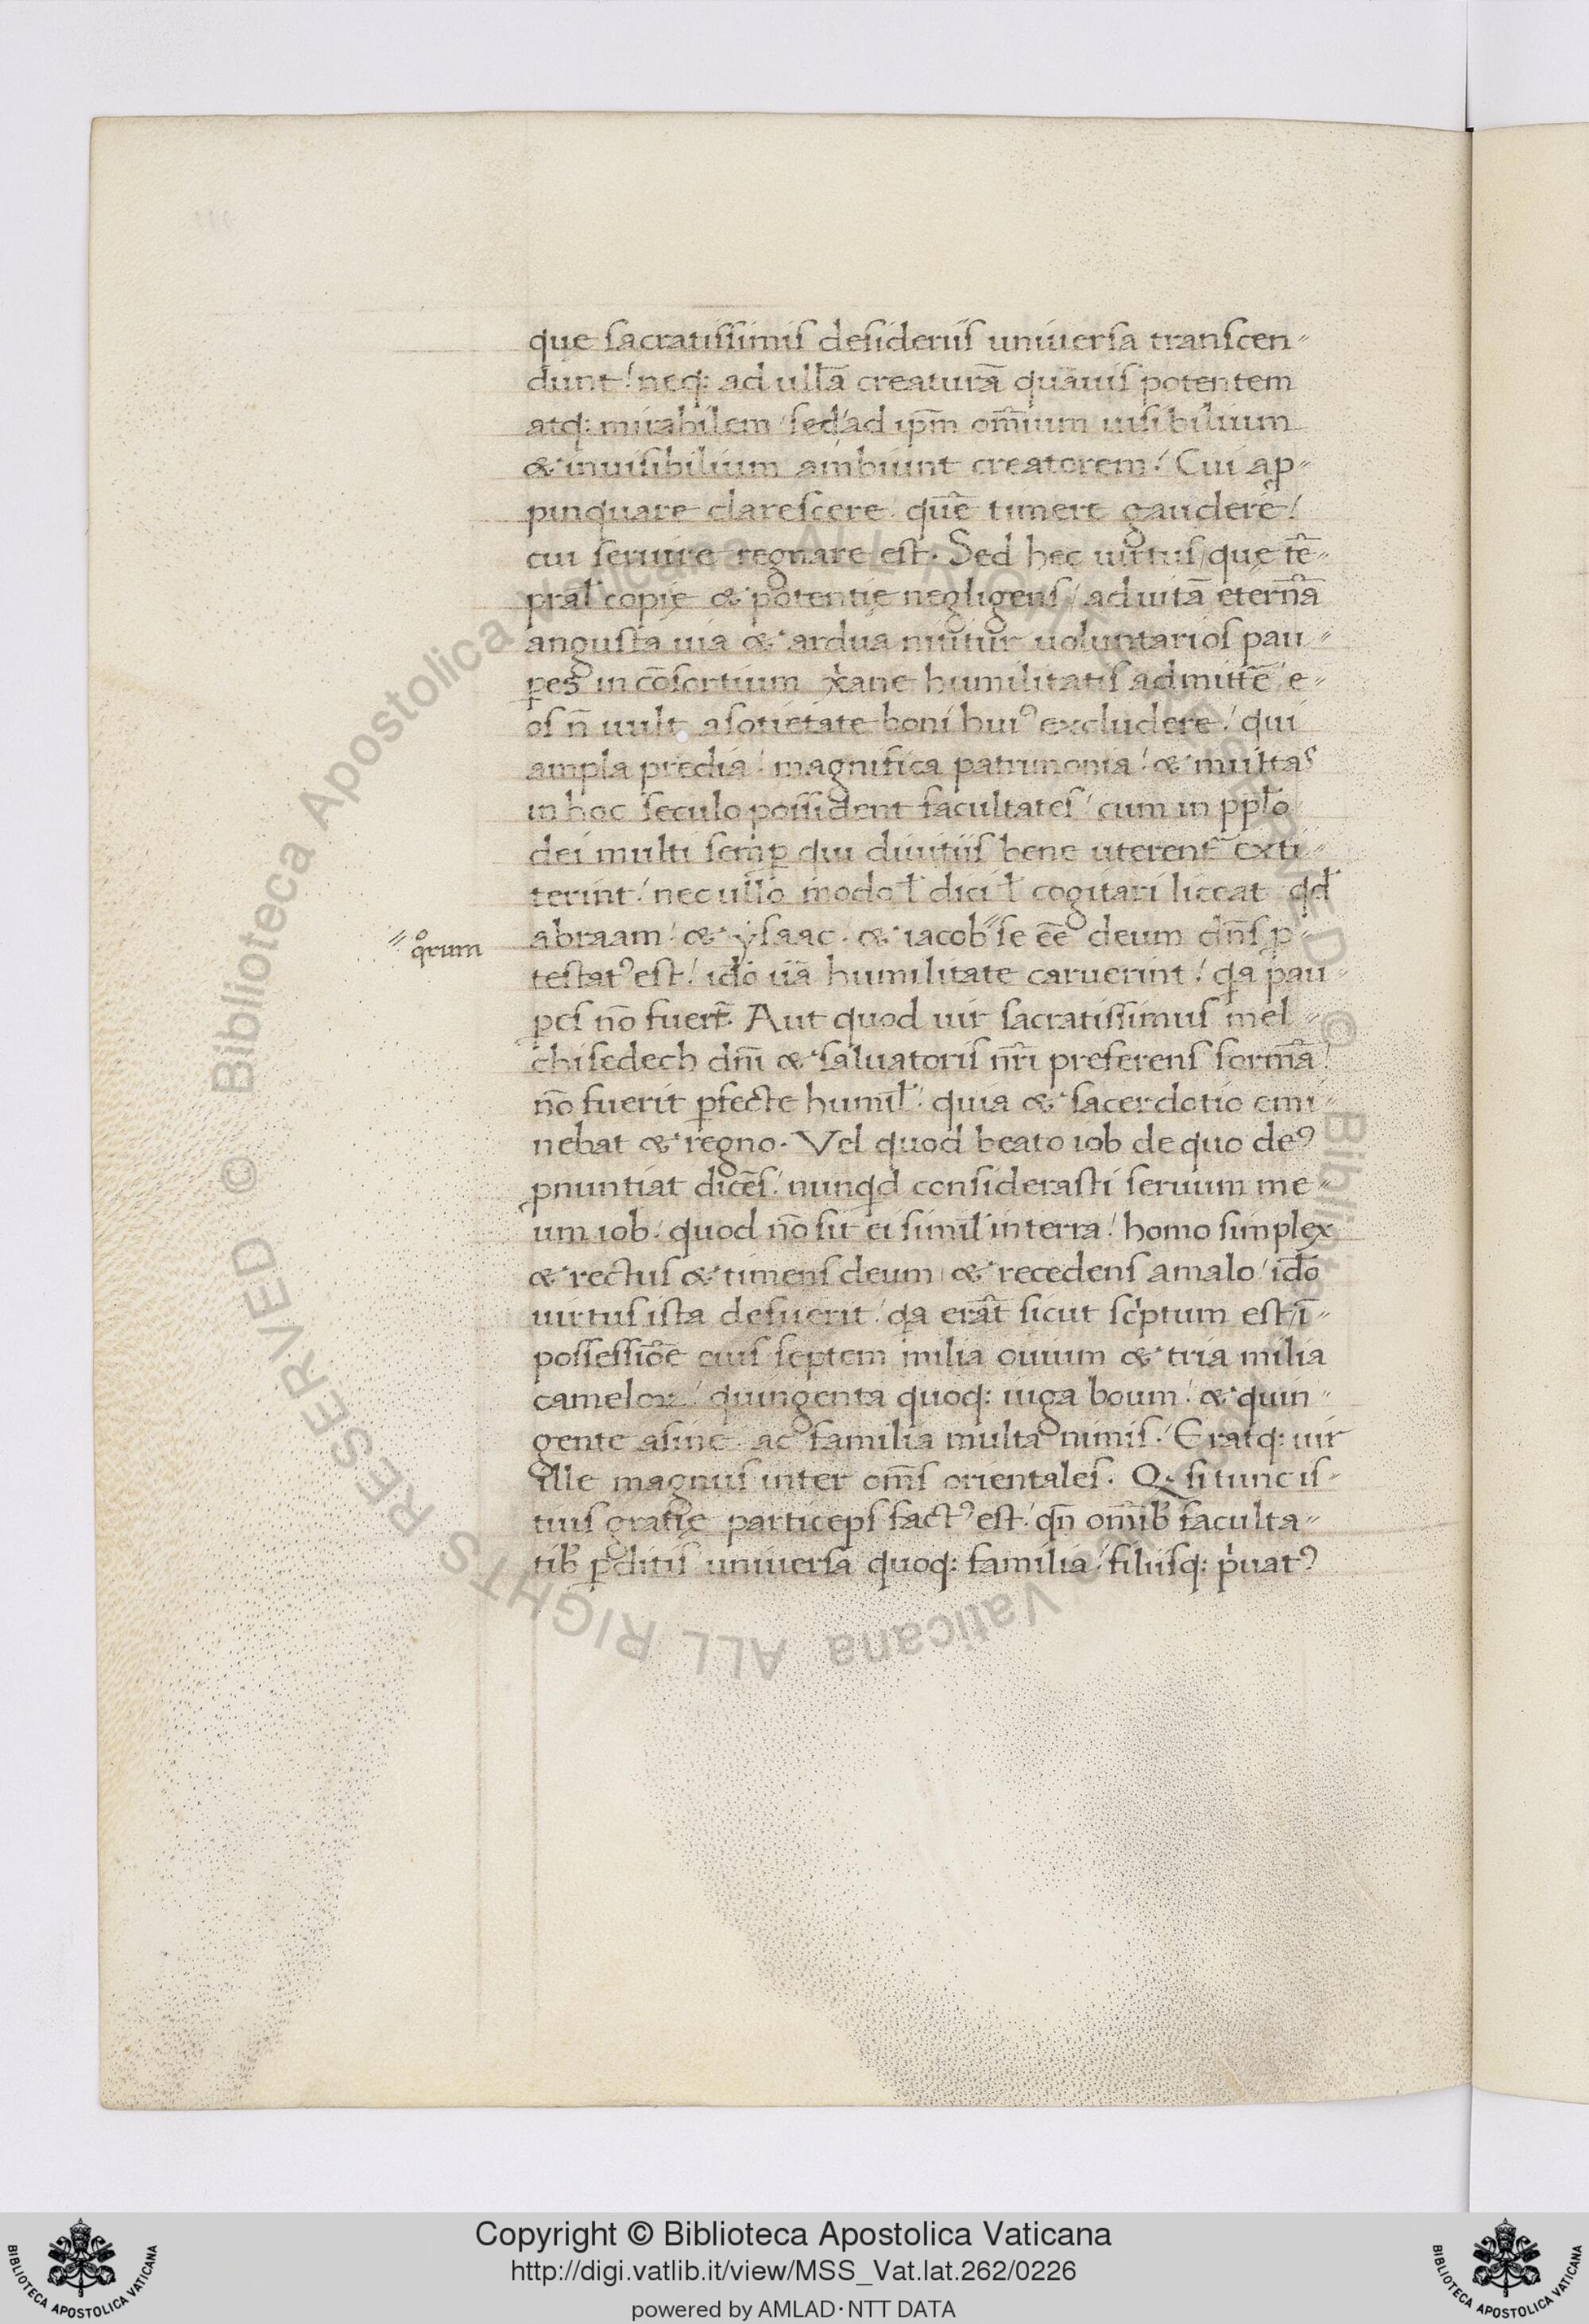 que sacratissimis desideriis uniuersa transcen〃
dunt / neq: ad ullā creaturā quāuis potentem
atq: mirabilem / sed / ad ip̄m om̄ium uisibilium
& inuisibilium ambiunt creatorem / Cui ap〃
pinquare clarescere . quē timere gaudere /
cui seruire regnare est . Sed hec uirtus / que tē〃
pral̄ copię & potentię negligens / ad uitā eternā
angusta uia & ardua nititur uoluntarios pau〃
ꝑes in cōsortium xp̄ane humilitatis admittē / e〃
os n̄ uult a sotietate boni huiꝰ excludere / qui
ampla predia / magnifica patrimonia / & multas
in hoc seculo possident facultates / cum in pplo
dei multi semꝑ qui diuitiis bene uterent̄ exti〃
terint / nec ullo modo l̄ dici l̄ cogitari liceat qd̄
〃 qͦrum
abraam / & ysaac . & iacob 〃 se ēe deum dn̄s p〃
testatꝰ est / idō uā humilitate caruerint / qa pau〃
ꝑes nō fuer̄t . Aut quod uir sacratissimus mel〃
chisedech dn̄i & saluatoris nr̄i preferens formā /
nō fuerit ꝑfecte humil̄ / quia & sacerdotio emi〃
nebat & regno . Vel quod beato iob de quo deꝰ
ꝓnuntiat dicēs / nunqd considerasti seruum me〃
um iob / quod nō sit ei simil̄ in terra / homo simplex
& rectus & timens deum / & recedens a malo / idō
uirtus ista defuerit / qa erāt sicut scͥptum est / ī〃
possessiōe eius septem milia ouium & tria milia
cameloꝝ / quingenta quoq: iuga boum / & quin〃
gente asine . ac familia multa nimis / Eratq: uir
ille magnus inter om̄s orientales . Q; si tunc is〃
tius gratię particeps factꝰ est / qn̄ om̄ib; faculta〃
tib; ꝑditis uniuersa quoq: familia / filiisq: pͥuatꝰ
Copyright © Biblioteca Apostolica Vaticana
http://digi.vatlib.it/view/MSS_Vat.lat.262/0226
powered by AMLAD·NTT DATA
BIBLIOTECA APOSTOLICA VATICANA
BIBLIOTECA APOSTOLICA VATICANA
© Biblioteca Apostolica Vaticana ALL RIGHTS RESERVED © Biblioteca Apostolica Vaticana ALL RIGHTS RESERVED